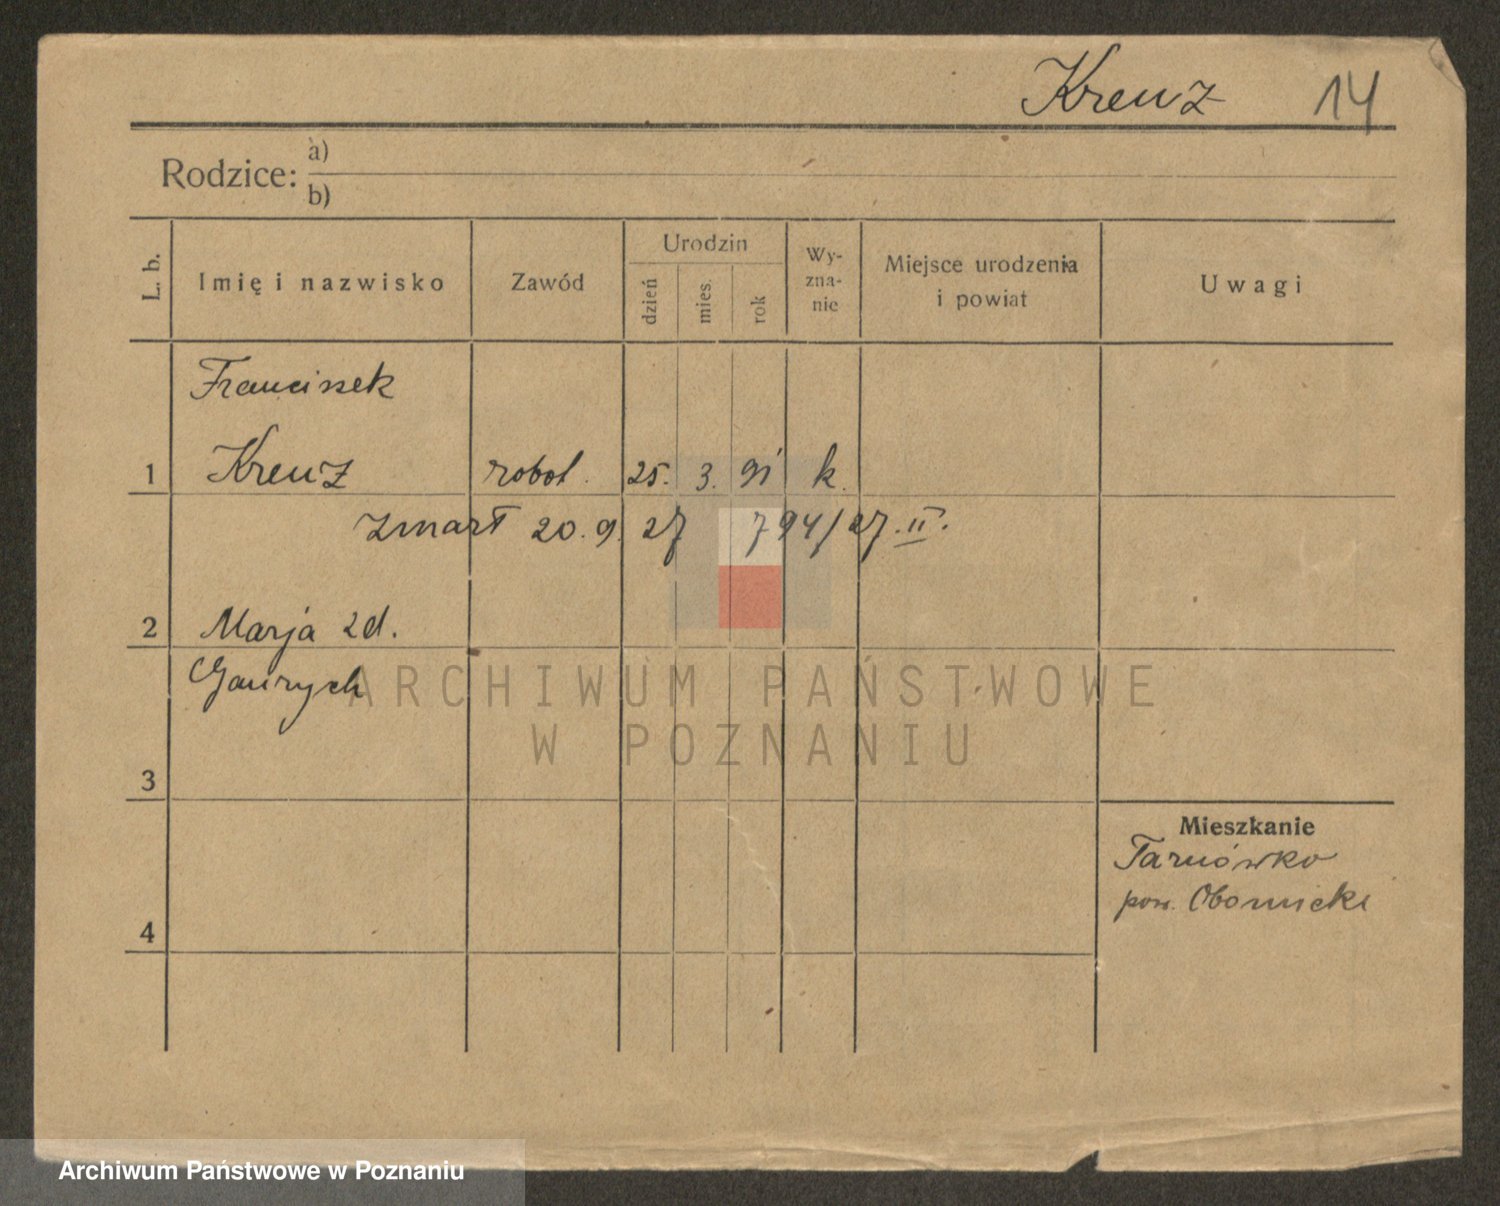 Kreuz 14
Rodzice: a)
b)
L. b.
Imię i nazwisko
Zawód
Urodzin
dzień
mies.
rok
Wy-
zna-
nie
Miejsce urodzenia
i powiat
Uwagi
Franciszek
1 Kreuz robot. 25. 3. 91 k.
zmarł 20. 9. 27 794/27. II.
2 Marja zd.
Gawrych
ARCHIWUM PAŃSTWOWE
W POZNANIU
3
Mieszkanie
Tarnówko
pow. Obornicki
4
Archiwum Państwowe w Poznaniu